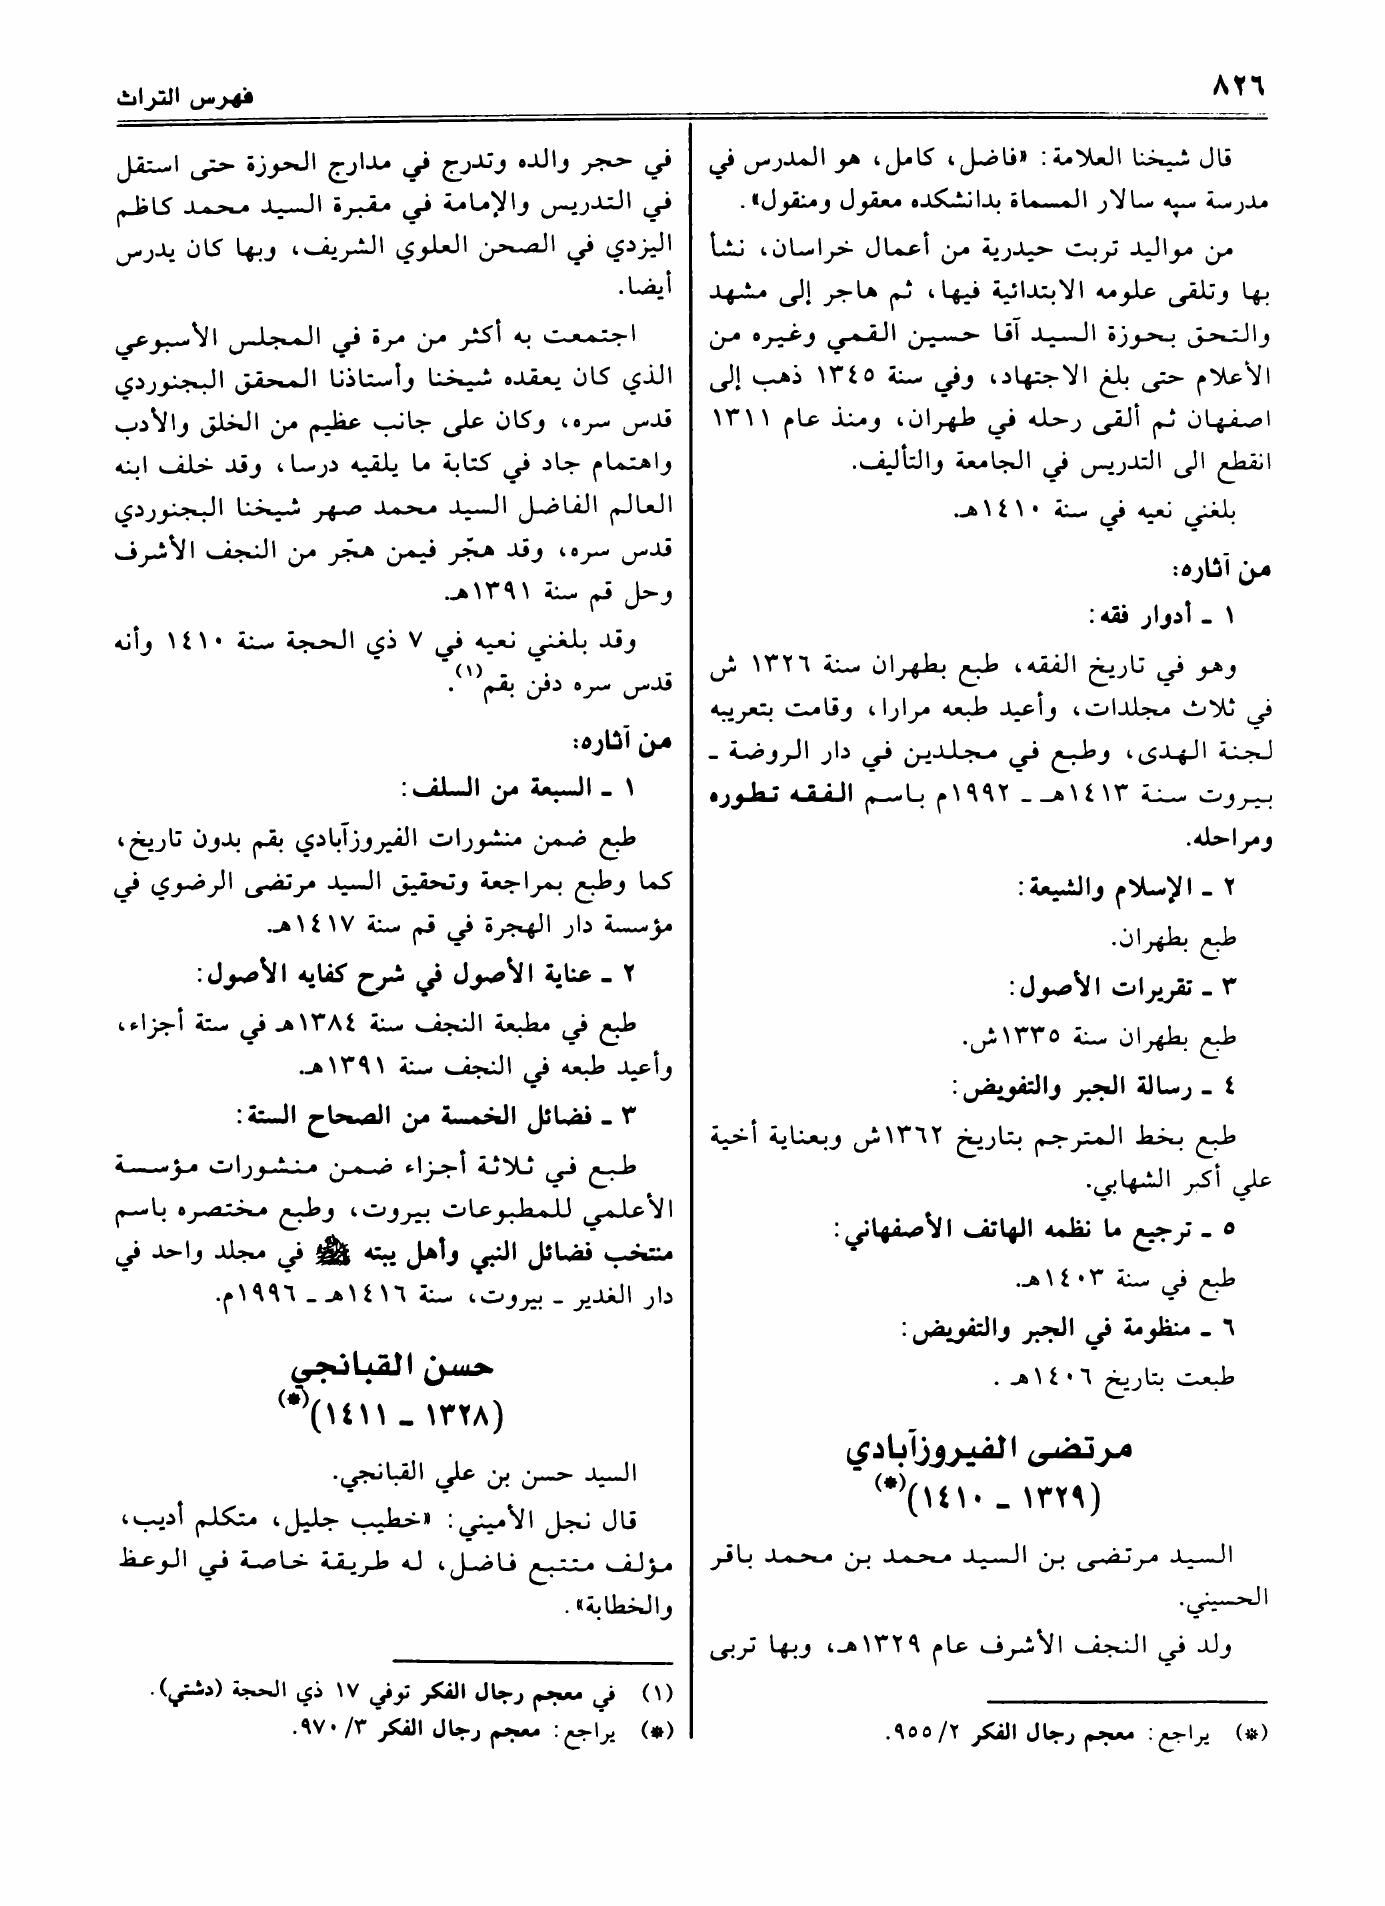 ٨٢٦
فهرس التراث
قال شيخنا العلامة: «فاضل، كامل، هو المدرس في
مدرسة سپه سالار المسماة بدانشكده معقول ومنقول».
من مواليد تربت حيدرية من أعمال خراسان، نشأ
بها وتلقى علومه الابتدائية فيها، ثم هاجر إلى مشهد
والتحق بحوزة السيد آقا حسين القمي وغيره من
الأعلام حتى بلغ الاجتهاد، وفي سنة ١٣٤٥ ذهب إلى
اصفهان ثم ألقى رحله في طهران، ومنذ عام ١٣١١
انقطع الى التدريس في الجامعة والتأليف.
بلغني نعيه في سنة ١٤١٠هـ.
من آثاره:
١ ـ أدوار فقه:
وهو في تاريخ الفقه، طبع بطهران سنة ١٣٢٦ ش
في ثلاث مجلدات، وأعيد طبعه مرارا، وقامت بتعريبه
لجنة الهدى، وطبع في مجلدين في دار الروضة ـ
بيروت سنة ١٤١٣هـ ـ ١٩٩٢م باسم الفقه تطوره
ومراحله.
٢ ـ الإسلام والشيعة:
طبع بطهران.
٣ ـ تقريرات الأصول:
طبع بطهران سنة ١٣٣٥ش.
٤ ـ رسالة الجبر والتفويض:
طبع بخط المترجم بتاريخ ١٣٦٢ش وبعناية أخية
علي أكبر الشهابي.
٥ ـ ترجيع ما نظمه الهاتف الأصفهاني:
طبع في سنة ١٤٠٣هـ.
٦ ـ منظومة في الجبر والتفويض:
طبعت بتاريخ ١٤٠٦هـ .
مرتضى الفيروزآبادي
(١٣٢٩ ـ ١٤١٠)(*)
السيد مرتضى بن السيد محمد بن محمد باقر
الحسيني.
ولد في النجف الأشرف عام ١٣٢٩هـ، وبها تربى
(*) يراجع: معجم رجال الفكر ٢/ ٩٥٥.
في حجر والده وتدرج في مدارج الحوزة حتى استقل
في التدريس والإمامة في مقبرة السيد محمد كاظم
اليزدي في الصحن العلوي الشريف، وبها كان يدرس
أيضا.
اجتمعت به أكثر من مرة في المجلس الأسبوعي
الذي كان يعقده شيخنا وأستاذنا المحقق البجنوردي
قدس سره، وكان على جانب عظيم من الخلق والأدب
واهتمام جاد في كتابة ما يلقيه درسا، وقد خلف ابنه
العالم الفاضل السيد محمد صهر شيخنا البجنوردي
قدس سره، وقد هجّر فيمن هجّر من النجف الأشرف
وحل قم سنة ١٣٩١هـ.
وقد بلغني نعيه في ٧ ذي الحجة سنة ١٤١٠ وأنه
قدس سره دفن بقم(١).
من آثاره:
١ ـ السبعة من السلف:
طبع ضمن منشورات الفيروزآبادي بقم بدون تاريخ،
كما وطبع بمراجعة وتحقيق السيد مرتضى الرضوي في
مؤسسة دار الهجرة في قم سنة ١٤١٧هـ.
٢ ـ عناية الأصول في شرح كفايه الأصول:
طبع في مطبعة النجف سنة ١٣٨٤هـ في ستة أجزاء،
وأعيد طبعه في النجف سنة ١٣٩١هـ.
٣ ـ فضائل الخمسة من الصحاح الستة:
طبع في ثلاثة أجزاء ضمن منشورات مؤسسة
الأعلمي للمطبوعات بيروت، وطبع مختصره باسم
منتخب فضائل النبي وأهل يبته ﷺ في مجلد واحد في
دار الغدير ـ بيروت، سنة ١٤١٦هـ ـ ١٩٩٦م.
حسن القبانجي
(١٣٢٨ ـ ١٤١١)(*)
السيد حسن بن علي القبانجي.
قال نجل الأميني: «خطيب جليل، متكلم أديب،
مؤلف متتبع فاضل، له طريقة خاصة في الوعظ
والخطابة».
(١) في معجم رجال الفكر توفي ١٧ ذي الحجة (دشتي).
(*) يراجع: معجم رجال الفكر ٣/ ٩٧٠.